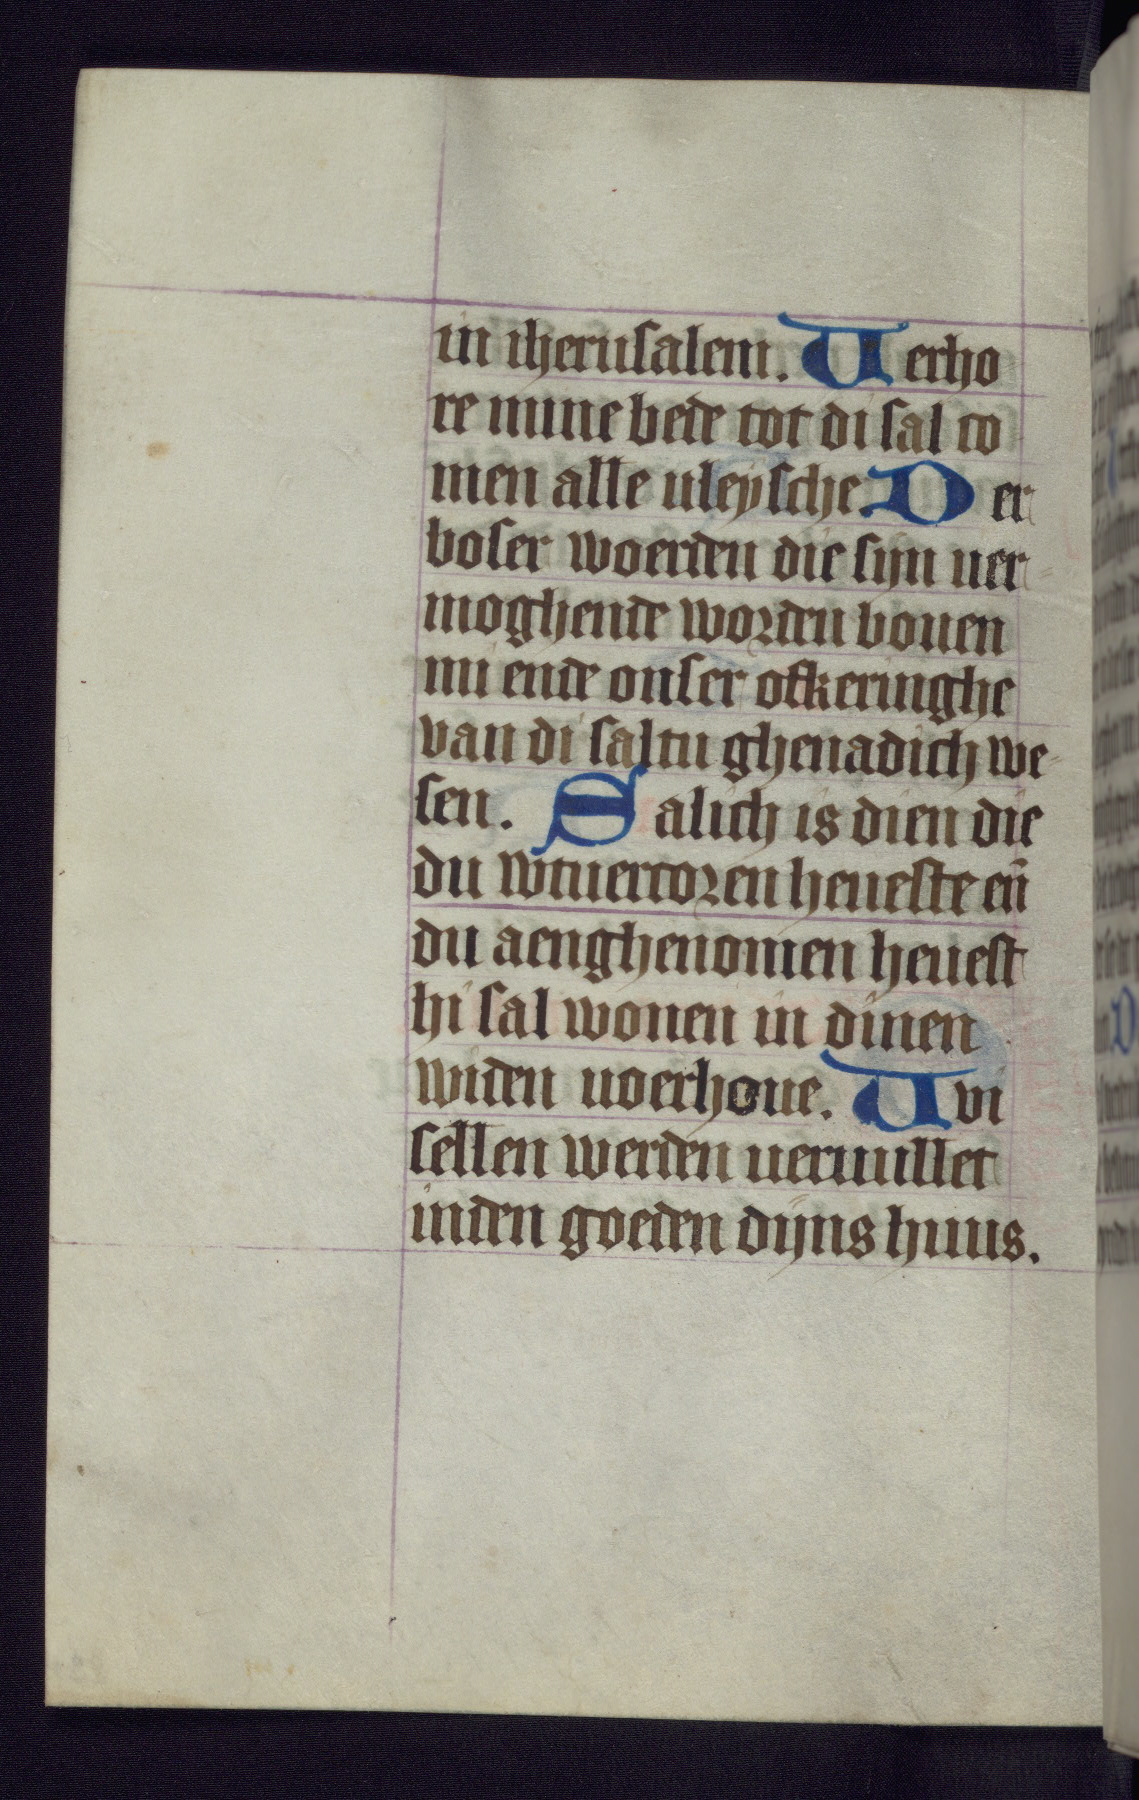 in iherusalem. Uerho
re mine bede tot di sal co
men alle uleysche. Der
boser woerden die sijn uer
moghende worden bouen
mi ende onser ofkeringhe
van di saltu ghenadich we-
sen. Salich is dien die
du wtuercoren heueste en̄
du aenghenomen heuest
hi sal wonen in dinen
widen uoerhoue. Wi
sellen werden ueruullet
inden goeden dijns huus.